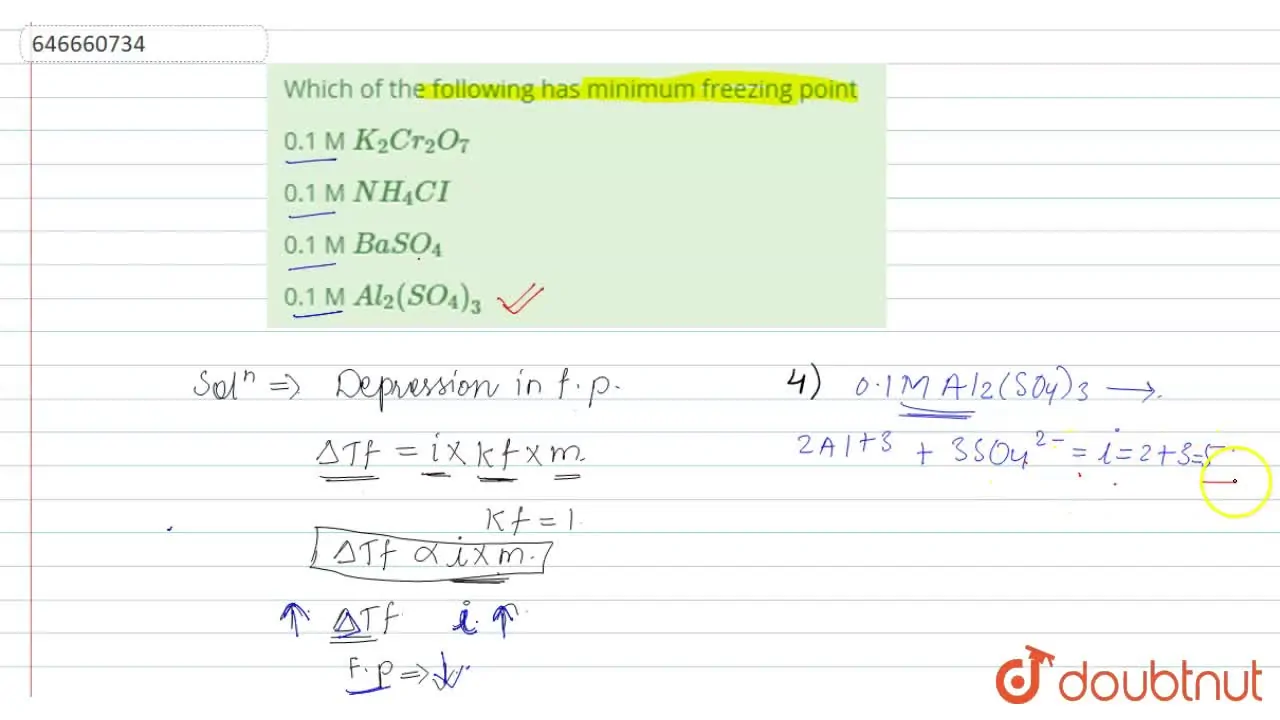 646660734
Which of the following has minimum freezing point
0.1 M K₂Cr₂O₇
0.1 M NH₄CI
0.1 M BaSO₄
0.1 M Al₂(SO₄)₃
Solⁿ ⇒ Depression in f.p.
ΔTf = i × kf × m.
kf = 1.
ΔTf ∝ i × m.
↑ ΔTf i ↑
F.p ⇒ ↓
4) 0.1 M Al2(SO4)3 →
2Al+3 + 3SO4²⁻ = i = 2+3=5
doubtnut